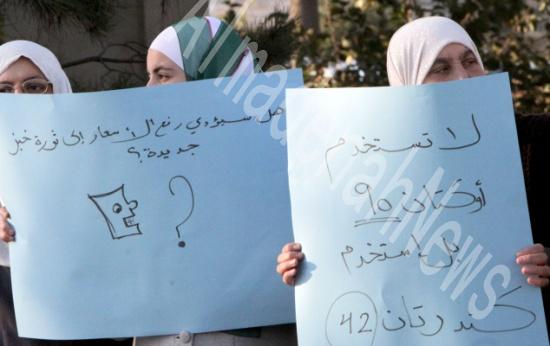 هل سيؤدي رفع الأسعار إلى ثورة خبز
جديدة؟
؟
لا تستخدم
أوكتان 90
بل استخدم
كندرتان 42
AlmadenahNews